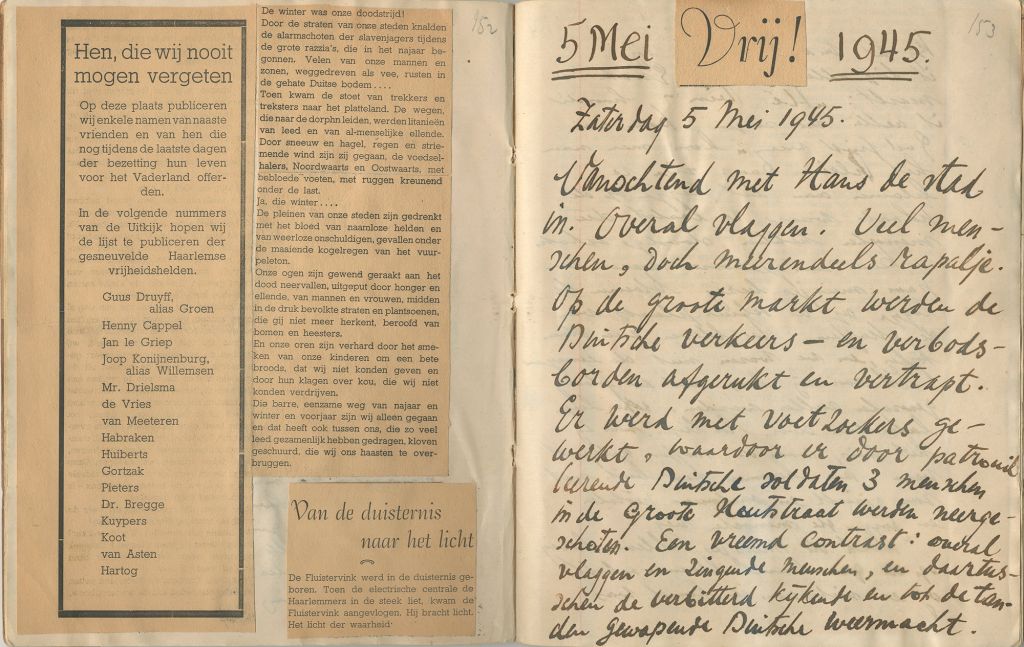 152
Hen, die wij nooit
mogen vergeten
Op deze plaats publiceren
wij enkele namen van naaste
vrienden en van hen die
nog tijdens de laatste dagen
der bezetting hun leven
voor het Vaderland offer-
den.
In de volgende nummers
van de Uitkijk hopen wij
de lijst te publiceren der
gesneuvelde Haarlemse
vrijheidshelden.
Guus Druyff,
alias Groen
Henny Cappel
Jan le Griep
Joop Konijnenburg,
alias Willemsen
Mr. Drielsma
de Vries
van Meeteren
Habraken
Huiberts
Gortzak
Pieters
Dr. Bregge
Kuypers
Koot
van Asten
Hartog
De winter was onze doodstrijd!
Door de straten van onze steden knalden
de alarmschoten der slavenjagers tijdens
de grote razzia's, die in het najaar be-
gonnen. Velen van onze mannen en
zonen, weggedreven als vee, rusten in
de gehate Duitse bodem....
Toen kwam de stoet van trekkers en
treksters naar het platteland. De wegen,
die naar de dorphn leiden, werden litanieën
van leed en van al-menselijke ellende.
Door sneeuw en hagel, regen en strie-
mende wind zijn zij gegaan, de voedsel-
halers, Noordwaarts en Oostwaarts, met
bebloede voeten, met ruggen kreunend
onder de last.
Ja, die winter....
De pleinen van onze steden zijn gedrenkt
met het bloed van naamloze helden en
van weerloze onschuldigen, gevallen onder
de maaiende kogelregen van het vuur-
peleton.
Onze ogen zijn gewend geraakt aan het
dood neervallen, uitgeput door honger en
ellende, van mannen en vrouwen, midden
in de druk bevolkte straten en plantsoenen,
die gij niet meer herkent, beroofd van
bomen en heesters.
En onze oren zijn verhard door het sme-
ken van onze kinderen om een bete
broods, dat wij niet konden geven en
door hun klagen over kou, die wij niet
konden verdrijven.
Die barre, eenzame weg van najaar en
winter en voorjaar zijn wij alleen gegaan
en dat heeft ook tussen ons, die zo veel
leed gezamenlijk hebben gedragen, kloven
geschuurd, die wij ons haasten te over-
bruggen.
Van de duisternis
naar het licht
De Fluistervink werd in de duisternis ge-
boren. Toen de electrische centrale de
Haarlemmers in de steek liet, kwam de
Fluistervink aangevlogen. Hij bracht licht.
Het licht der waarheid
153
5 Mei Vrij! 1945.
Zaterdag 5 Mei 1945.
Vanochtend met Hans de stad
in. Overal vlaggen. Veel men-
schen, doch meerendeels rapalje.
Op de groote markt werden de
Duitsche verkeers- en verbods-
borden afgerukt en vertrapt.
Er werd met voetzoekers ge-
werkt, waardoor er door patrouil
leerende Duitsche soldaten 3 menschen
in de Groote Houtstraat werden neerge-
schoten. Een vreemd contrast: overal
vlaggen en zingende menschen, en daartus-
schen de verbitterd kijkende en tot de tan-
den gewapende Duitsche weermacht.